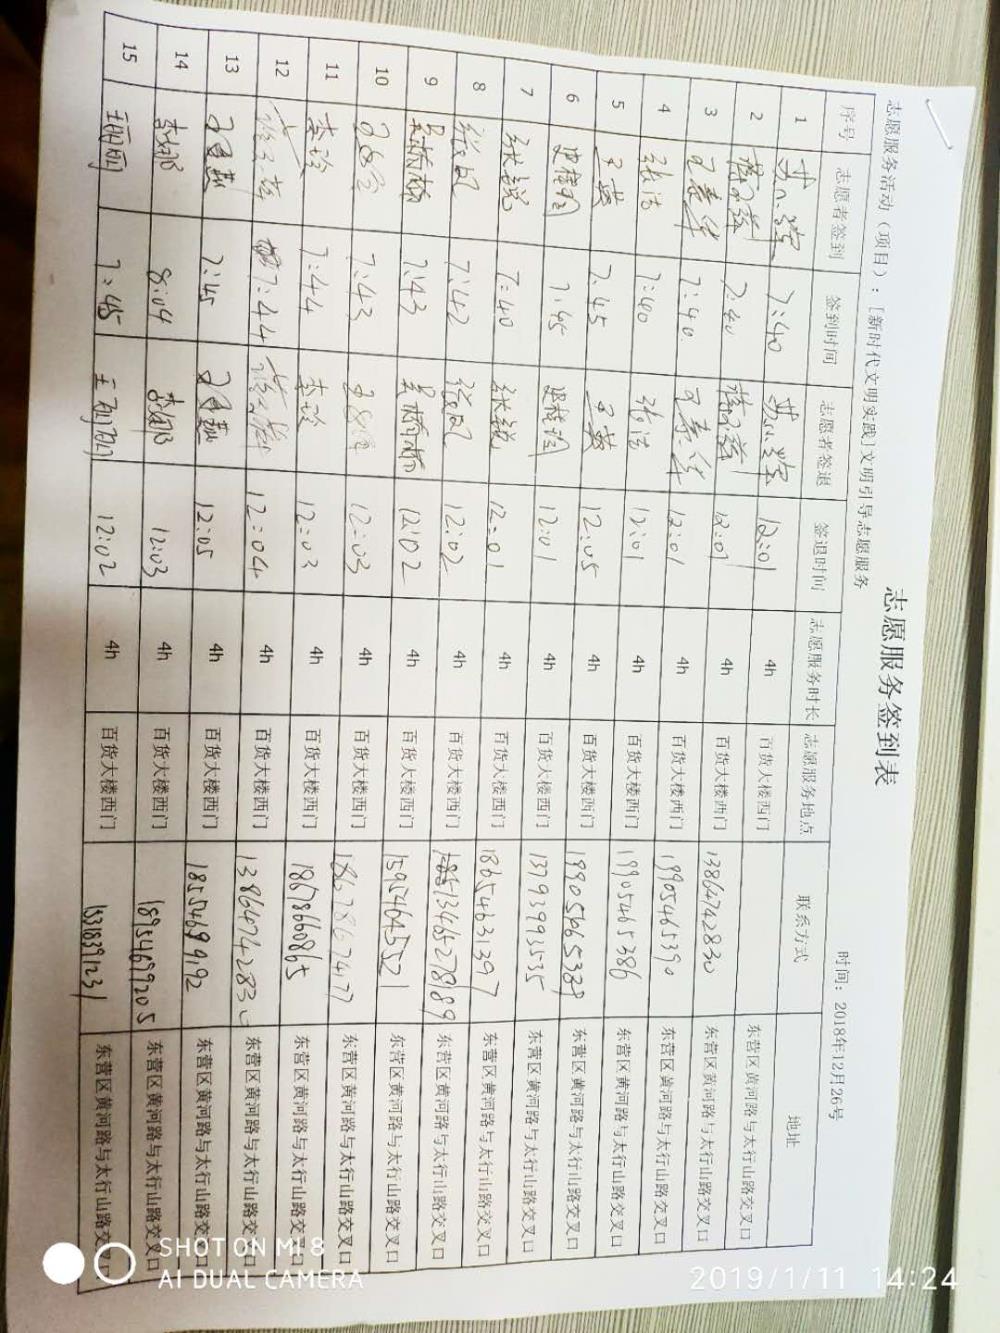 志愿服务签到表
志愿服务活动（项目）：[新时代文明实践]文明引导志愿服务 时间：2018年12月26号
序号 志愿者签到 签到时间 志愿者签退 签退时间 志愿服务时长 志愿服务地点 联系方式 地址
1 7:40 12:01 4h 百货大楼西门 东营区黄河路与太行山路交叉口
2 7:40 12:01 4h 百货大楼西门 13864742830 东营区黄河路与太行山路交叉口
3 7:40 12:01 4h 百货大楼西门 19905465390 东营区黄河路与太行山路交叉口
4 张洁 7:40 张洁 12:01 4h 百货大楼西门 19905465386 东营区黄河路与太行山路交叉口
5 王英 7:45 王英 12:05 4h 百货大楼西门 东营区黄河路与太行山路交叉口
6 7:45 12:01 4h 百货大楼西门 13793993535 东营区黄河路与太行山路交叉口
7 张锐 7:40 张锐 12:01 4h 百货大楼西门 18654631397 东营区黄河路与太行山路交叉口
8 7:42 12:02 4h 百货大楼西门 东营区黄河路与太行山路交叉口
9 7:43 12:02 4h 百货大楼西门 15954645521 东营区黄河路与太行山路交叉口
10 7:43 12:03 4h 百货大楼西门 18678674177 东营区黄河路与太行山路交叉口
11 李玲 7:44 李玲 12:03 4h 百货大楼西门 18678660865 东营区黄河路与太行山路交叉口
12 7:44 12:04 4h 百货大楼西门 东营区黄河路与太行山路交叉口
13 7:45 12:05 4h 百货大楼西门 18554699192 东营区黄河路与太行山路交叉口
14 李娜 8:04 李娜 12:03 4h 百货大楼西门 18954697205 东营区黄河路与太行山路交叉口
15 7:45 12:02 4h 百货大楼西门 15318391231 东营区黄河路与太行山路交叉口
SHOT ON MI 8
AI DUAL CAMERA
2019/1/11 14:24